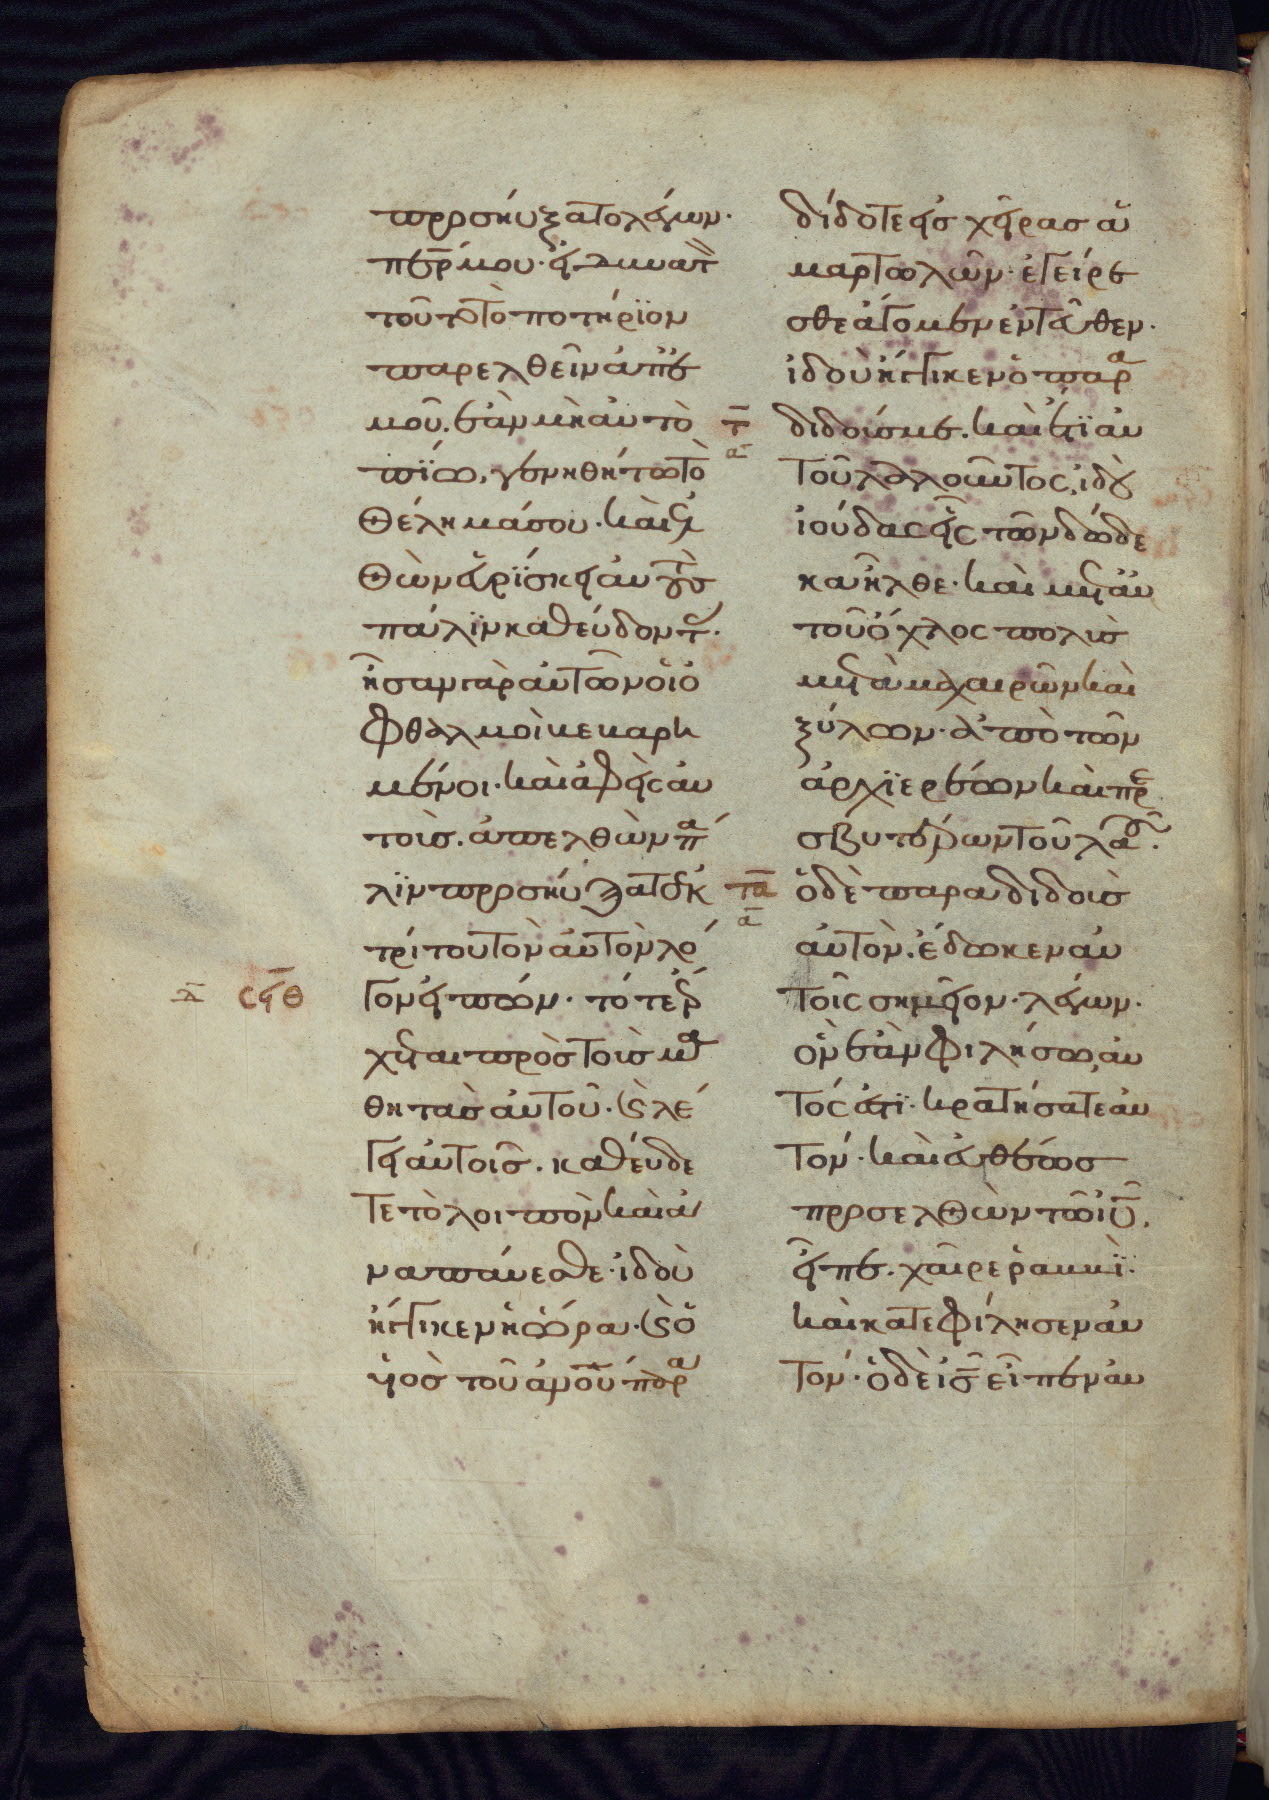 προσηύξατο λέγων·
περ μου· εἰ δυνατ
τοῦτο τὸ ποτήρϊον
παρελθεῖν ἀπ ε
μοῦ. ἐὰν μὴ αὐτὸ
πίω, γενηθήτω τὸ
θέλημά σου· καὶ ἐλ
θὼν εὑρίσκει αὐτοὺς
πάλϊν καθεύδοντ·
ἦσαν γὰρ αὐτῶν οἱ ὀ
φθαλμοὶ κεκαρη
μένοι· καὶ ἀφεὶς αὐ
τοὺς. ἀπελθὼν πά
λϊν προσηύξατο ἐκ
τρίτου τὸν αὐτὸν λό
λ̄ σϥθ γον εἰπών· τότε ἔρ
χεται πρὸς τοὺς μα
θητὰς αὐτοῦ· καὶ λέ
γει αὐτοῖς. καθεύδε
τε τὸ λοιπὸν καὶ ἀ
ναπαύεσθε· ἰδοὺ
ἤγγικεν ἡ ὥρα· καὶ ὁ
υἱὸς τοῦ ἀνου παρα
δίδοτε εἰς χεῖρας ἁ
μαρτωλῶν· ἐγείρε
σθε ἄγομεν ἐντεῦθεν·
ἰδοὺ ἤγγικεν ὁ παρα
τ̄ α διδούς με. καὶ ἔτϊ αὐ
τοῦ λαλοῦντος, ἰδοὺ
ἰούδας εἷς τῶν δώδε
κα ἦλθε· καὶ μετ αὐ
τοῦ ὄχλος πολὺς
μετὰ μαχαιρῶν καὶ
ξύλων· ἀπὸ τῶν
ἀρχϊερέων καὶ πρε
σβυτέρων τοῦ λαοῦ.
τα ᾱ ὁ δὲ παραδιδοὺς
αὐτὸν. ἔδωκεν αὐ
τοῖς σημεῖον· λέγων·
ὃν ἐὰν φιλήσω, αὐ
τός ἐστϊ· κρατήσατε αὐ
τόν· καὶ εὐθέως
προσελθὼν τῶ ιυ,
εἶπε. χαῖρε ῥαββϊ·
καὶ κατεφίλησεν αὐ
τόν· ὁ δὲ ις εἶπεν αὐ